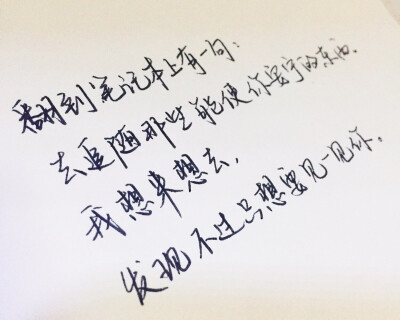 翻到笔记本上有一句：
去追随那些能使你安宁的东西。
我想来想去，
发现不过只想要见一见你。